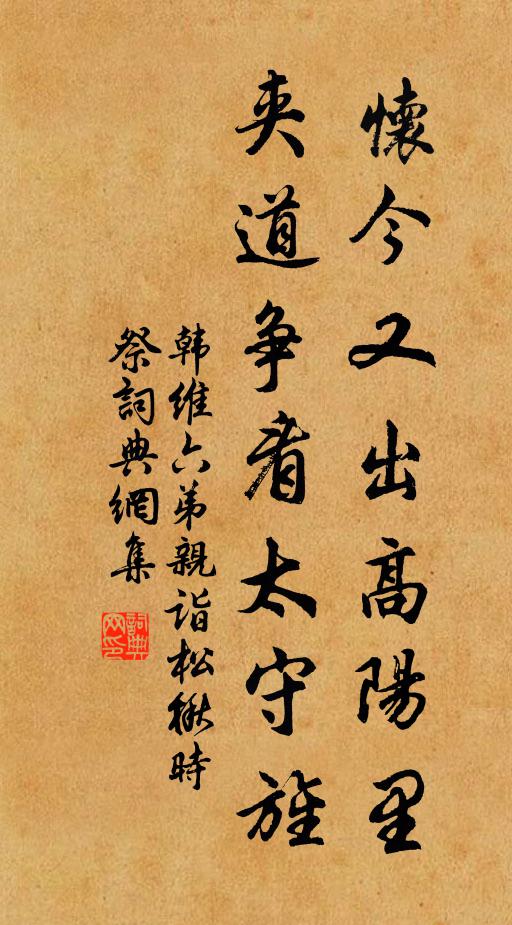 懷今又出高陽里
夾道争看太守旌
韩維六弟親詣松楸時
祭詞典網集
詞典网印